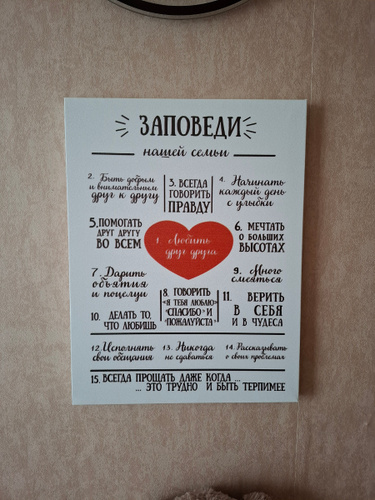 ЗАПОВЕДИ
нашей семьи
1. Любить
друг друга
2. Быть добрым
и внимательным
друг к другу
3. ВСЕГДА
ГОВОРИТЬ
ПРАВДУ
4. Начинать
каждый день
с улыбки
5. ПОМОГАТЬ
ДРУГ ДРУГУ
ВО ВСЕМ
6. МЕЧТАТЬ
О БОЛЬШИХ
ВЫСОТАХ
7. Дарить
объятия
и поцелуи
8. ГОВОРИТЬ
"Я ТЕБЯ ЛЮБЛЮ"
"СПАСИБО" И
"ПОЖАЛУЙСТА"
9. Много
смеяться
10. ДЕЛАТЬ ТО,
ЧТО ЛЮБИШЬ
11. ВЕРИТЬ
В СЕБЯ
И В ЧУДЕСА
12. Исполнять
свои обещания
13. Никогда
не сдаваться
14. Рассказывать
о своих проблемах
15. ВСЕГДА ПРОЩАТЬ ДАЖЕ КОГДА ...
... ЭТО ТРУДНО И БЫТЬ ТЕРПИМЕЕ